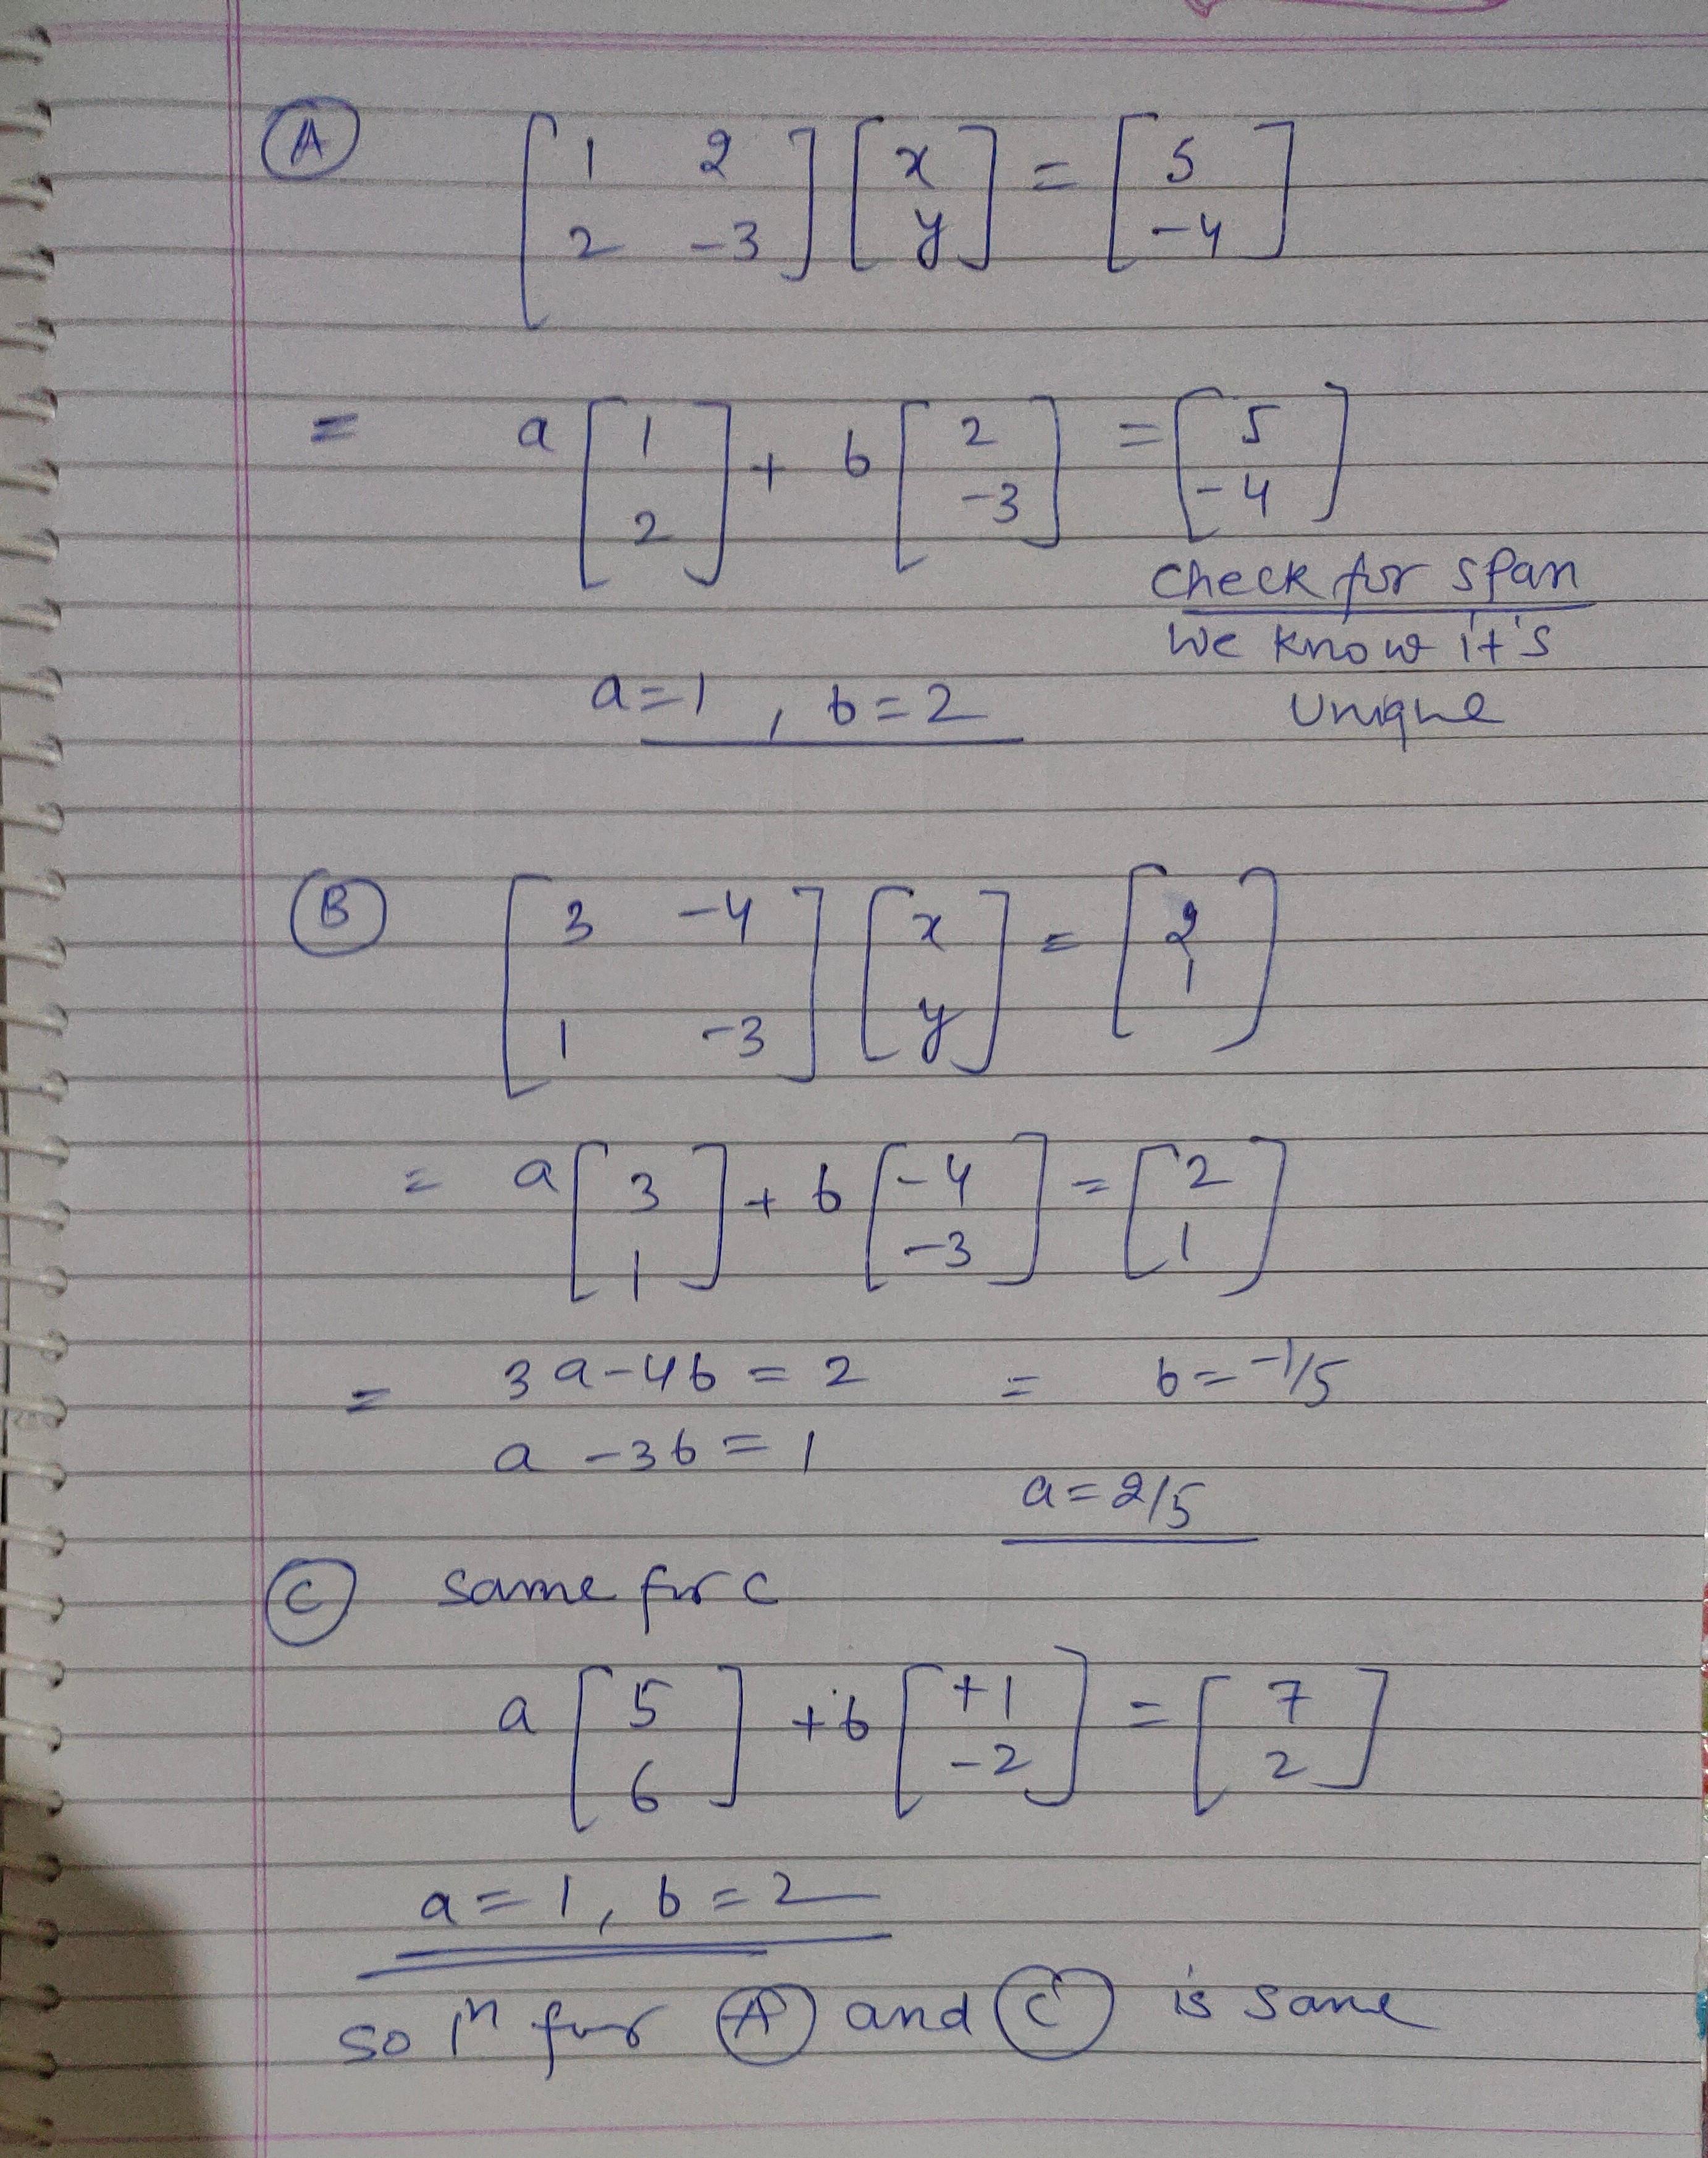 A [1 2 2 -3] [x y] = [5 -4]
= a [1 2] + b [2 -3] = [5 -4]
check for span
we know it's
unique
a=1 , b=2
B [3 -4 1 -3] [x y] = [2 1]
= a [3 1] + b [-4 -3] = [2 1]
= 3a-4b = 2 = b=-1/5
a -3b = 1
a=2/5
C same for c
a [5 6] +b [+1 -2] = [7 2]
a=1, b=2
so lⁿ for A and C is same